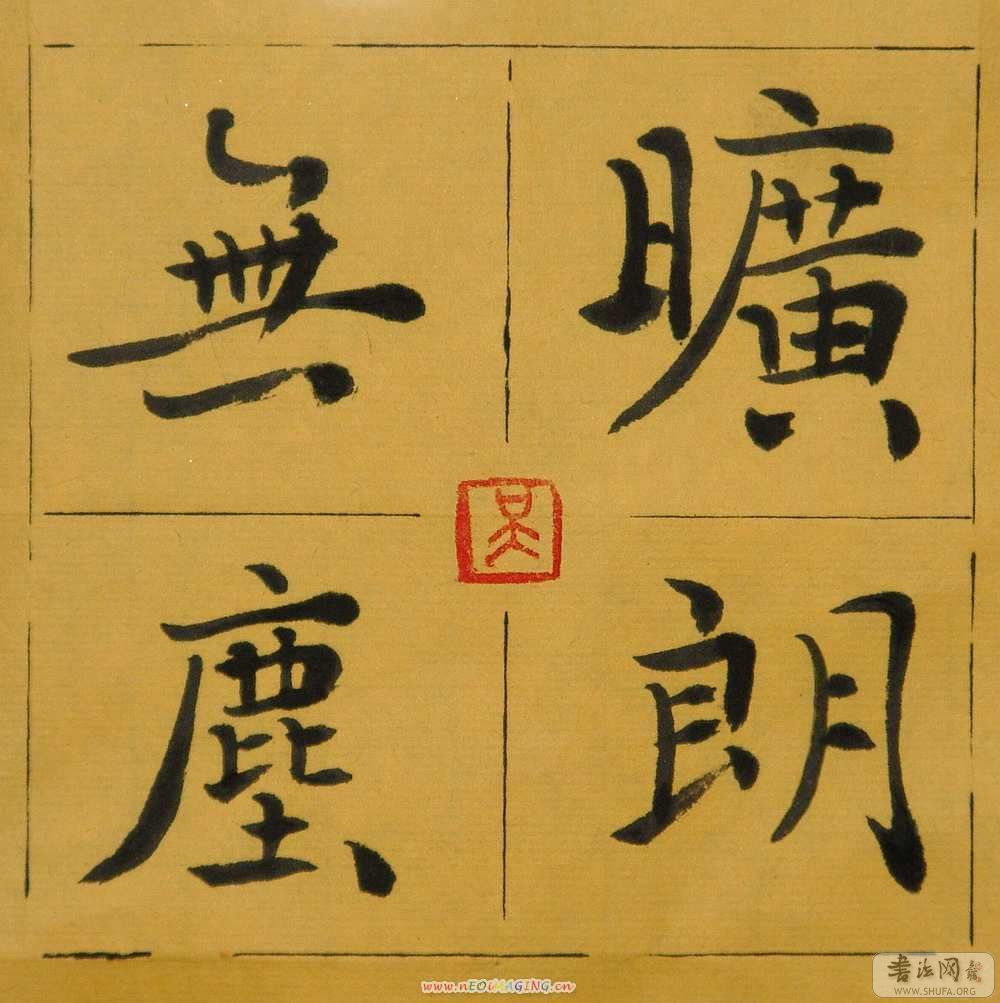 曠朗
無塵
吴
www.nEOiMAGING.cn
书法网
WWW.SHUFA.ORG